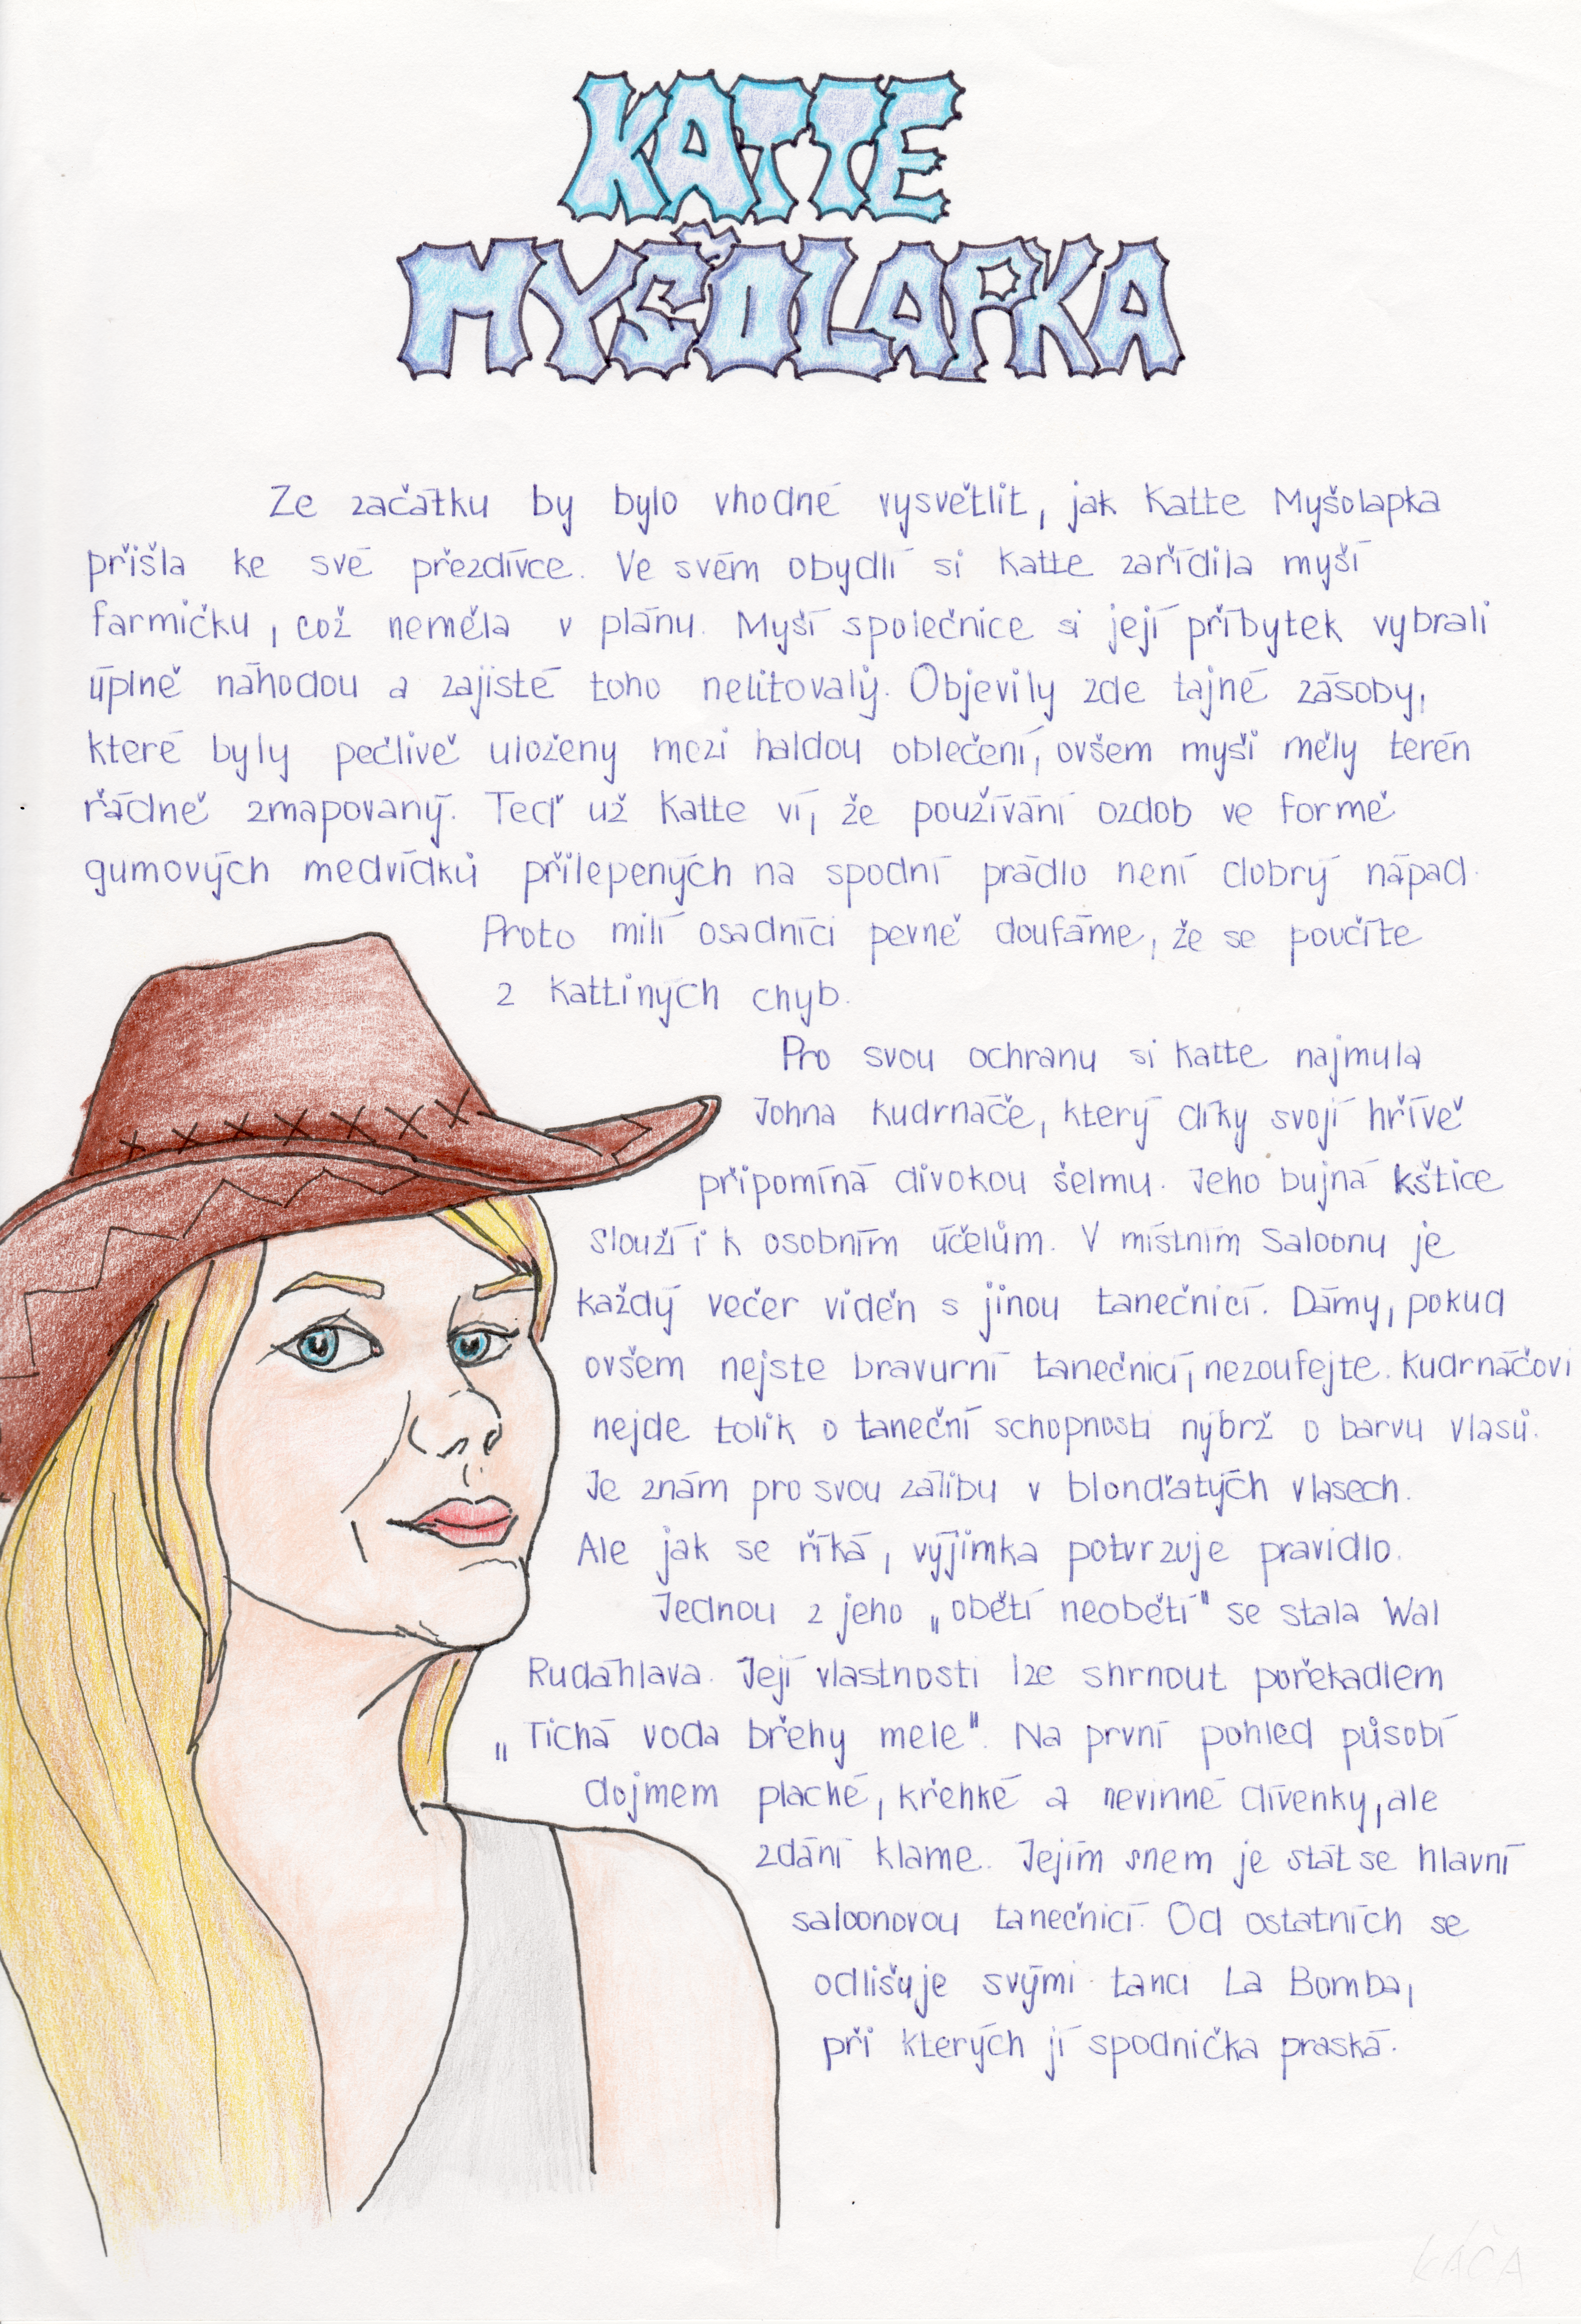 KATTE
MYŠOLAPKA
Ze začátku by bylo vhodné vysvětlit, jak Katte Myšolapka
přišla ke své přezdívce. Ve svém obydlí si Katte zařídila myší
farmičku, což neměla v plánu. Myší společnice si její příbytek vybrali
úplně náhodou a zajisté toho nelitovaly. Objevily zde tajné zásoby,
které byly pečlivě uloženy mezi haldou oblečení, ovšem myši měly terén
řádně zmapovaný. Teď už Katte ví, že používání ozdob ve formě
gumových medvídků přilepených na spodní prádlo není dobrý nápad.
Proto milí osadníci pevně doufáme, že se poučíte
z Kattiných chyb.
Pro svou ochranu si Katte najmula
Johna Kudrnáče, který díky svojí hřívě
připomíná divokou šelmu. Jeho bujná kštice
slouží i k osobním účelům. V místním Saloonu je
každý večer viděn s jinou tanečnicí. Dámy, pokud
ovšem nejste bravurní tanečnicí, nezoufejte. Kudrnáčovi
nejde tolik o taneční schopnosti nýbrž o barvu vlasů.
Je znám pro svou zálibu v blonďatých vlasech.
Ale jak se říká, výjimka potvrzuje pravidlo.
Jednou z jeho „obětí neobětí" se stala Wal
Rudáhlava. Její vlastnosti lze shrnout pořekadlem
„Tichá voda břehy mele". Na první pohled působí
dojmem plaché, křehké a nevinné dívenky, ale
zdání klame. Jejím snem je stát se hlavní
saloonovou tanečnicí. Od ostatních se
odlišuje svými tanci La Bomba,
při kterých jí spodnička praská.
KÁČA